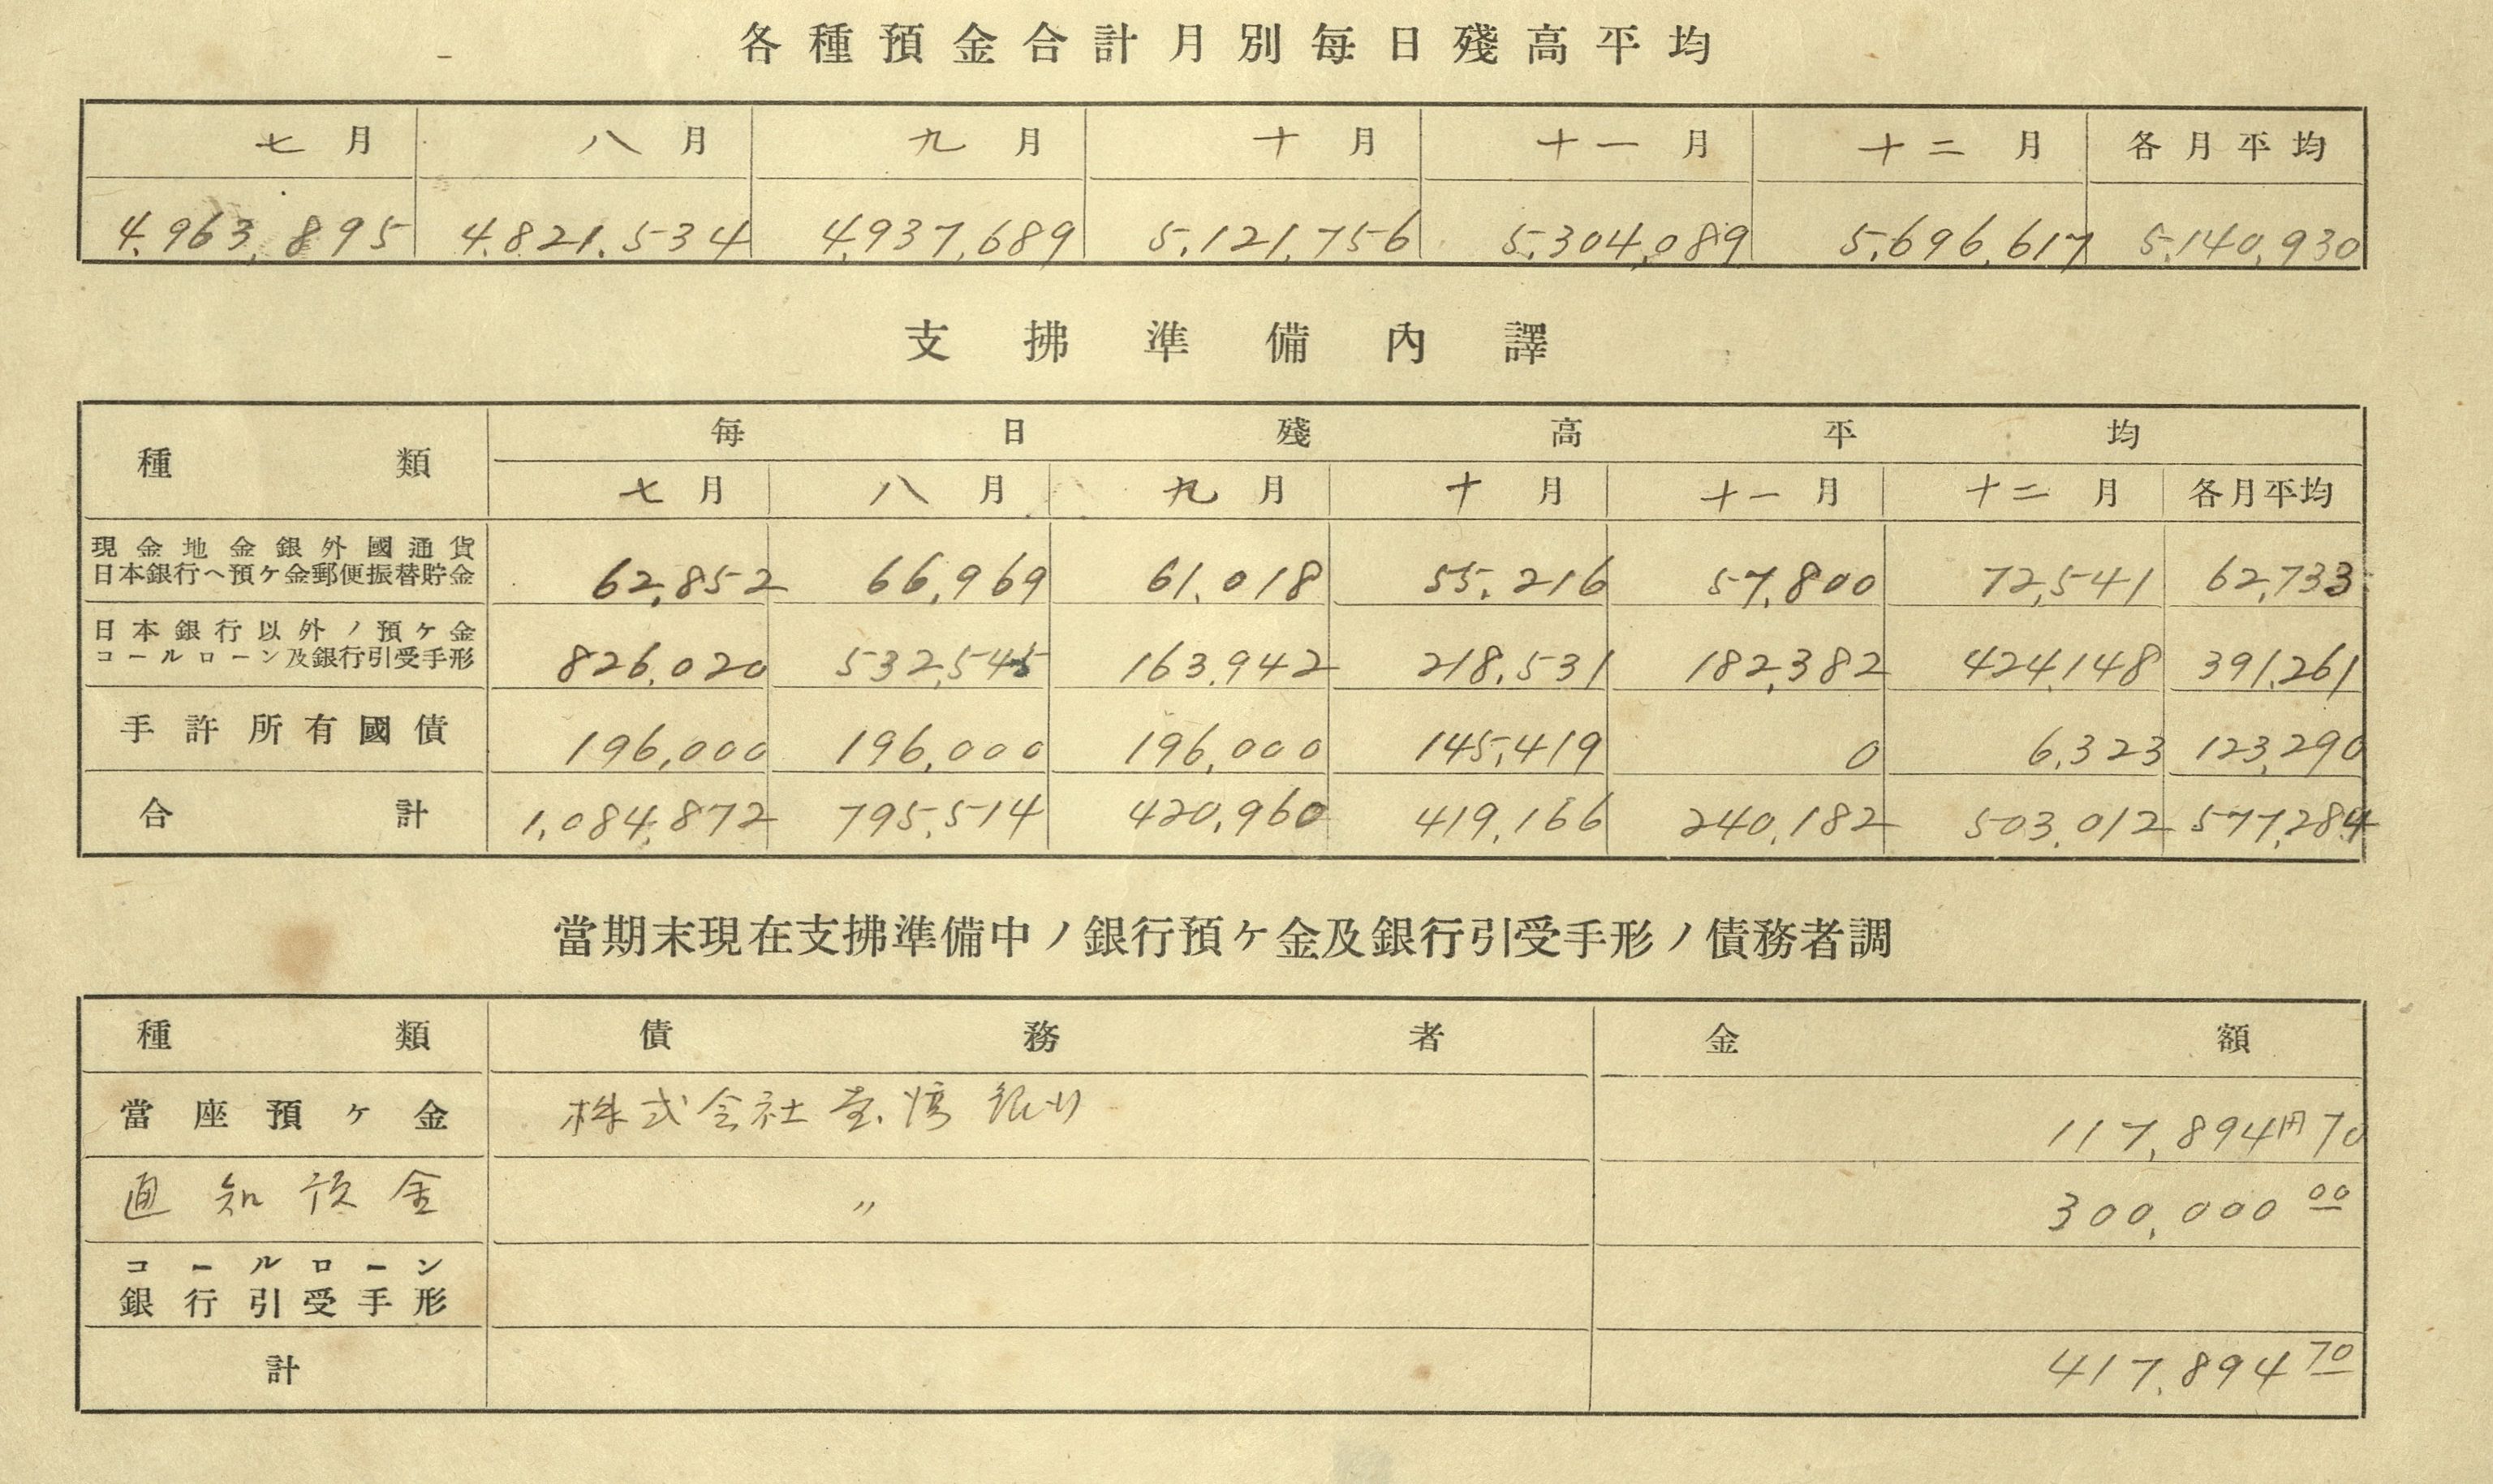 各種預金合計月別每日殘高平均
七月 八月 九月 十月 十一月 十二月 各月平均
4,963,895 4,821,534 4,937,689 5,121,756 5,304,089 5,696,617 5,140,930
支拂準備內譯
種類 每日殘高平均
七月 八月 九月 十月 十一月 十二月 各月平均
現金地金銀外國通貨
日本銀行ヘ預ケ金郵便振替貯金 62,852 66,969 61,018 55,216 57,800 72,541 62,733
日本銀行以外ノ預ケ金
コールローン及銀行引受手形 826,020 532,545 163,942 218,531 182,382 424,148 391,261
手許所有國債 196,000 196,000 196,000 145,419 0 6,323 123,290
合計 1,084,872 795,514 420,960 419,166 240,182 503,012 577,284
當期末現在支拂準備中ノ銀行預ケ金及銀行引受手形ノ債務者調
種類 債務者 金額
當座預ケ金 株式会社臺湾銀行 117,894円70
通知預金 〃 300,000 00
コールローン
銀行引受手形
計 417,894 70